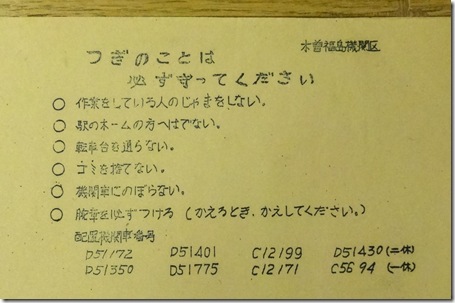 木曽福島機関区
つぎのことは
必ず守ってください
○ 作業をしている人のじゃまをしない。
○ 駅のホームの方へはでない。
○ 転車台を通らない。
○ ゴミを捨てない。
○ 機関車にのぼらない。
○ 腕章を必ずつける(かえるとき、かえしてください。)
配置機関車番号
D51172 D51401 C12199 D51430(二休)
D51350 D51775 C12171 C5694(一休)